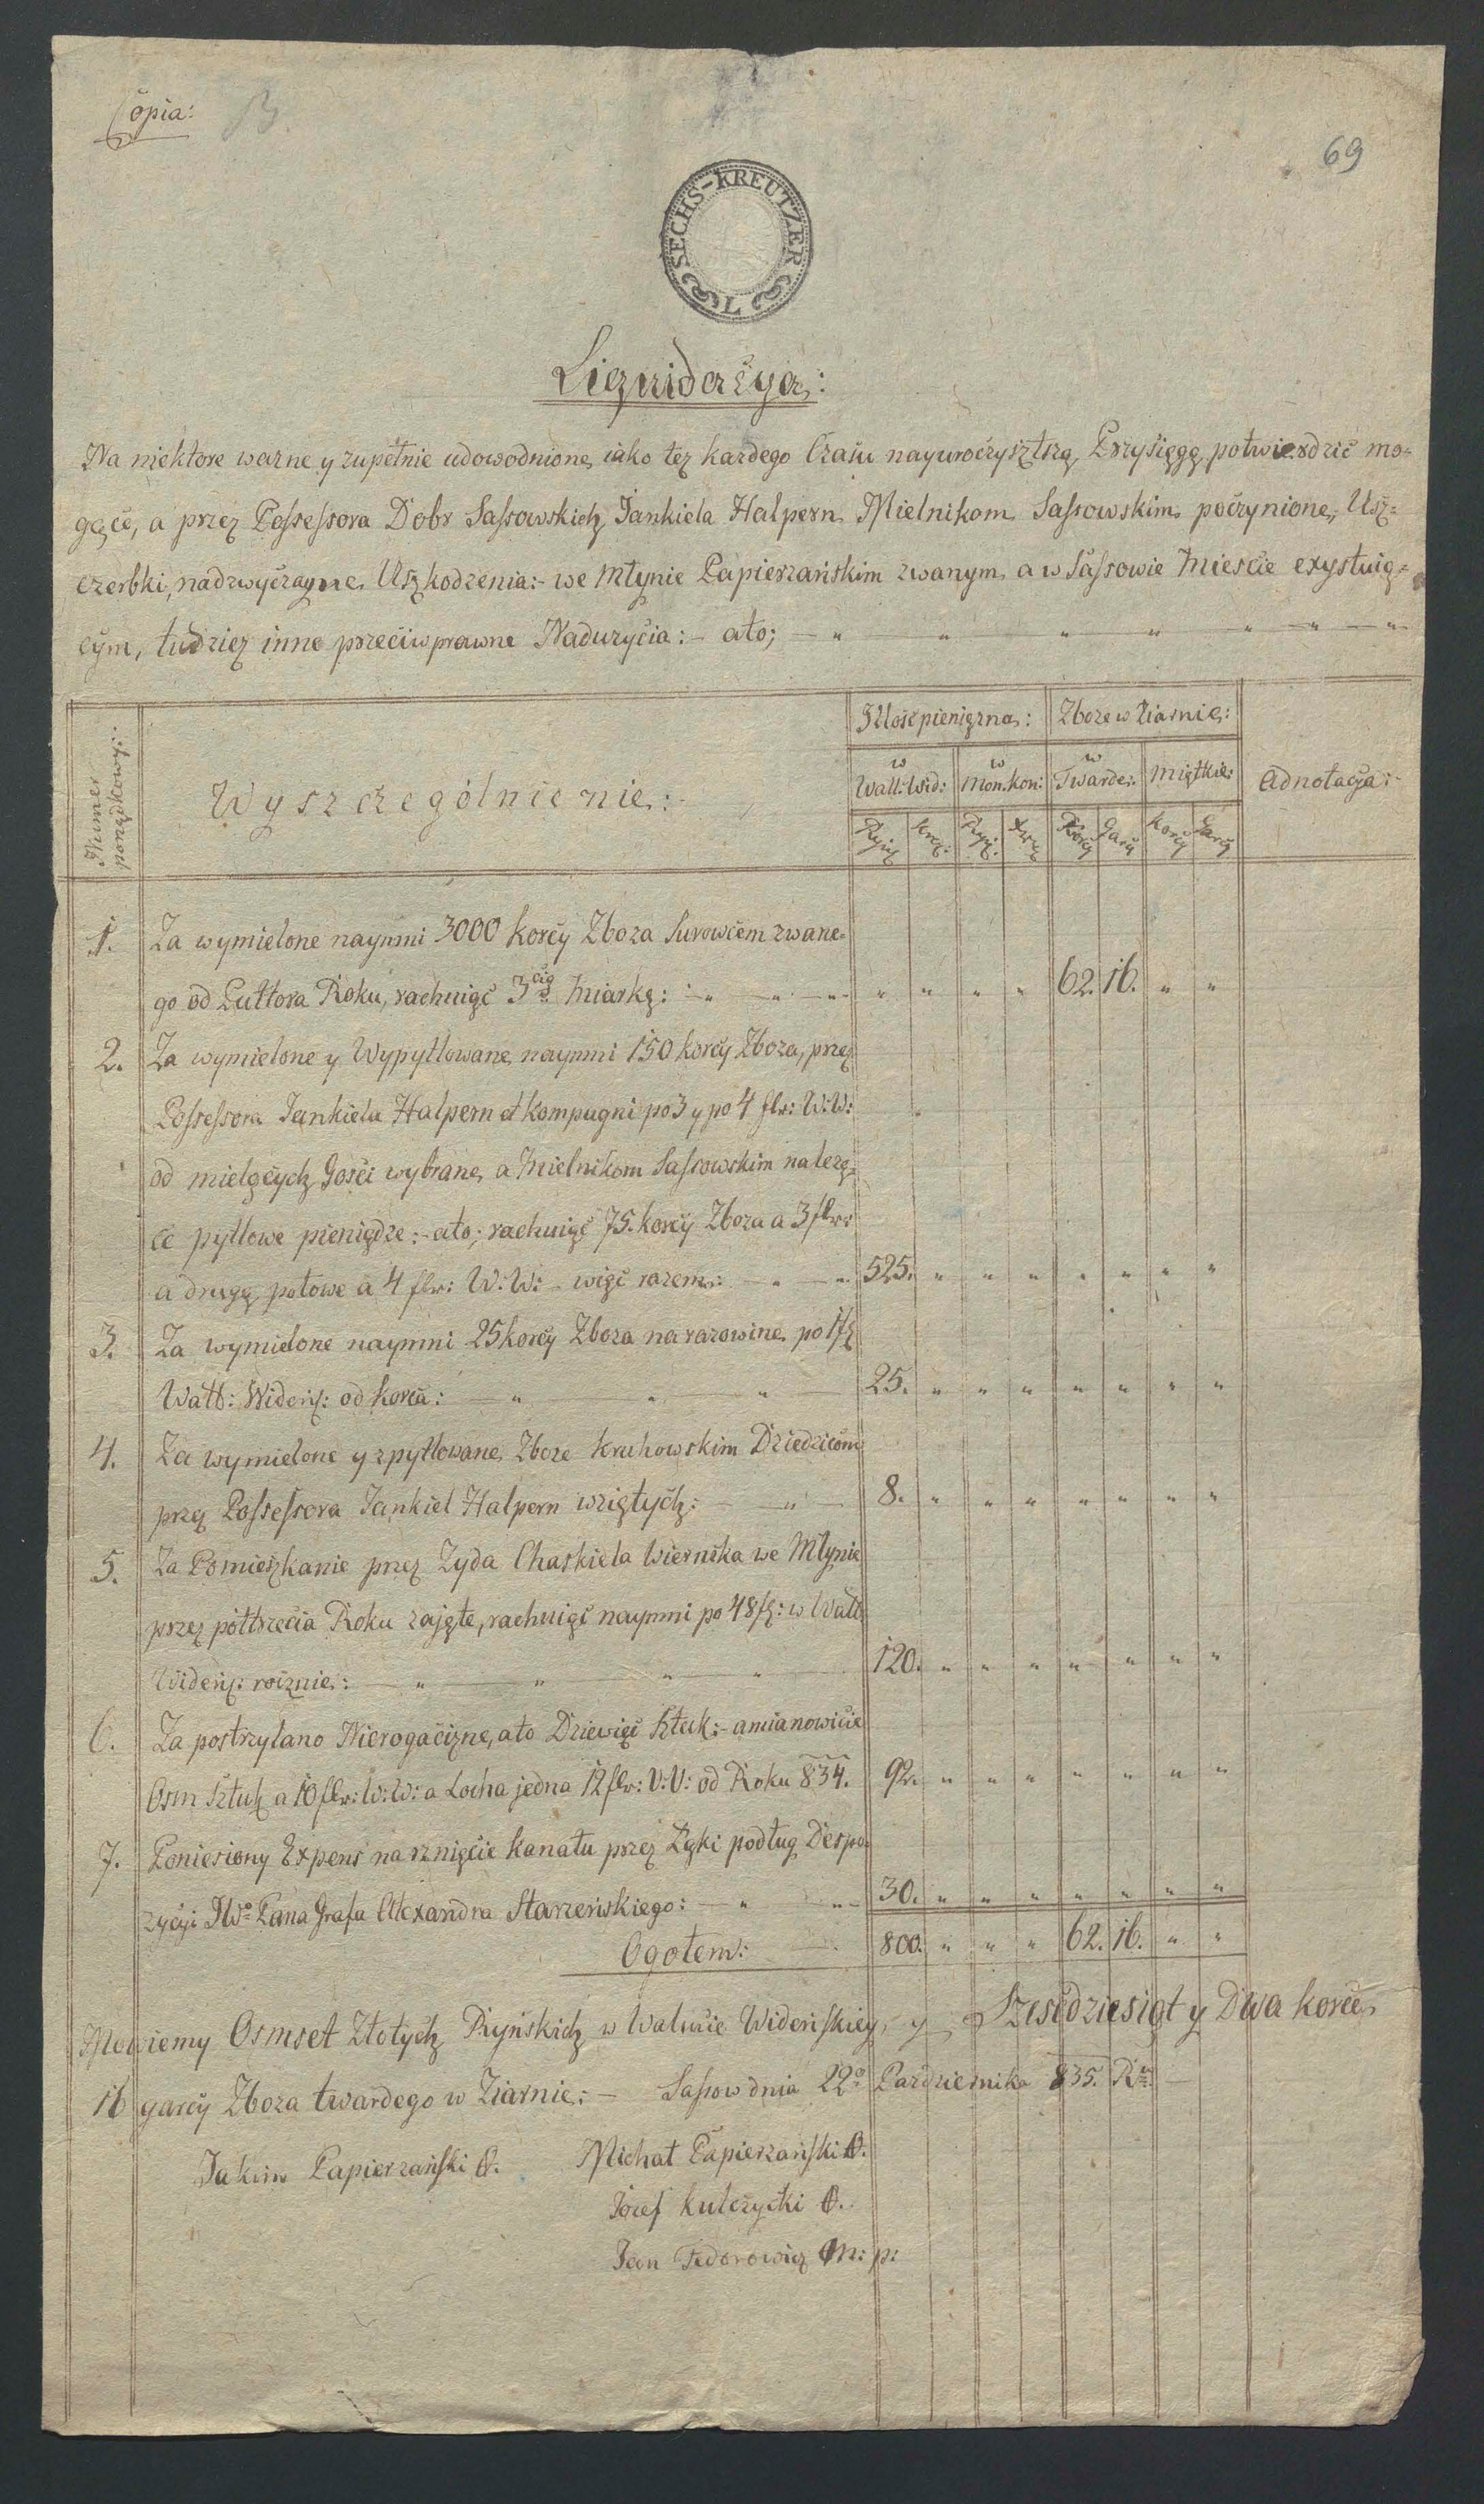 Copia: B.
69
SECHS-KREUTZER
L
Liquidacya:
Na niektore wazne y zupełnie udowodnione, iako tez kazdego Czasu nayuroczystszą Przysięgę potwierdzić mo-
gące, a przez Possessora Dobr Sassowskich Jankiela Halpern Mielnikom Sassowskim poczynione, Usz-
czerbki, nadzwyczayne Uszkodzenia:- we Młynie Papierzańskim zwanym a w Sassowie Mieście exystuią-
cym, tudziez inne przeciwprawne Naduzycia:- ato; — " " " " " — " — "
Numer
porządkowy:
Wyszczególnienie:
Ilość pieniężna:
Zboze w Ziarnie:
Adnotacja:
w
Wall: Wid:
w
Mon. kon:
w
Twarde:
Miętkie:
Ryń
Krą:
Ryń:
Xrz
Korcy
Garcy
Korcy
Garcy
1. Za wymielone naymni 3000 Korcy Zboza Surowcem zwane-
go od Puttora Roku, rachuiąc 3cią Miarkę: — " — " — " " " " " 62. 16. " "
2. Za wymielone y Wypytlowane naymni 150 korcy Zboza, przez
Possessora Jankiela Halpern et Kompagni po 3 y po 4 flr: W: W:
od mielących Gości wybrane, a Mielnikom Sassowskim nalezą-
ce pytlowe pieniądze:- ato; rachuiąc 75. korcy Zboza a 3 flr:
a drugą połowe a 4 flr: W: W: - więc razem: — " — " 525. " " " " " " "
3. Za wymielone naymni 25 korcy Zboza na razowine po 1 f
Wall: Wideńs: od korca: — " — " — " 25. " " " " " " "
4. Za wymielone y zpytlowane Zboze Kruhowskim Dziedzicom
przez Possessora Jankiel Halpern wziętych: — " — 8. " " " " " " "
5. Za Pomieszkanie przez Zyda Chaskiela Wiernika we Młynie
przez półtrzecia Roku zajęte, rachuiąc naymni po 48 f: w Wall
Wideńs: rocznie: — " — " — " — " 120. " " " " " " "
6. Za postrzylano Nierogacizne, ato Dziewięć Sztuk:- a mianowicie
Osm Sztuk a 10 flr: W: W: a Locha jedna 12 flr: V: V: od Roku 834. 92. " " " " " " "
7. Poniesiony Expens na rznięcie kanału przez Łąki podług Dispo-
zycyi JWo Pana Grafa Alexandra Starzeńskiego: — " — " 30. " " " " " " "
Ogołem: — 800. " " " 62. 16. " "
Mowiemy Osmset Złotych Ryńskich w Walucie Wideńskiey, y Szesćdziesiąt y Dwa korce,
16 garcy Zboza twardego w Ziarnie:- Sassow dnia 22o Pazdziernika 835. Ru —
Jakim Papierzański
Michał Papierzański
Józef Kulczycki
Jan Fedorowicz m: p: